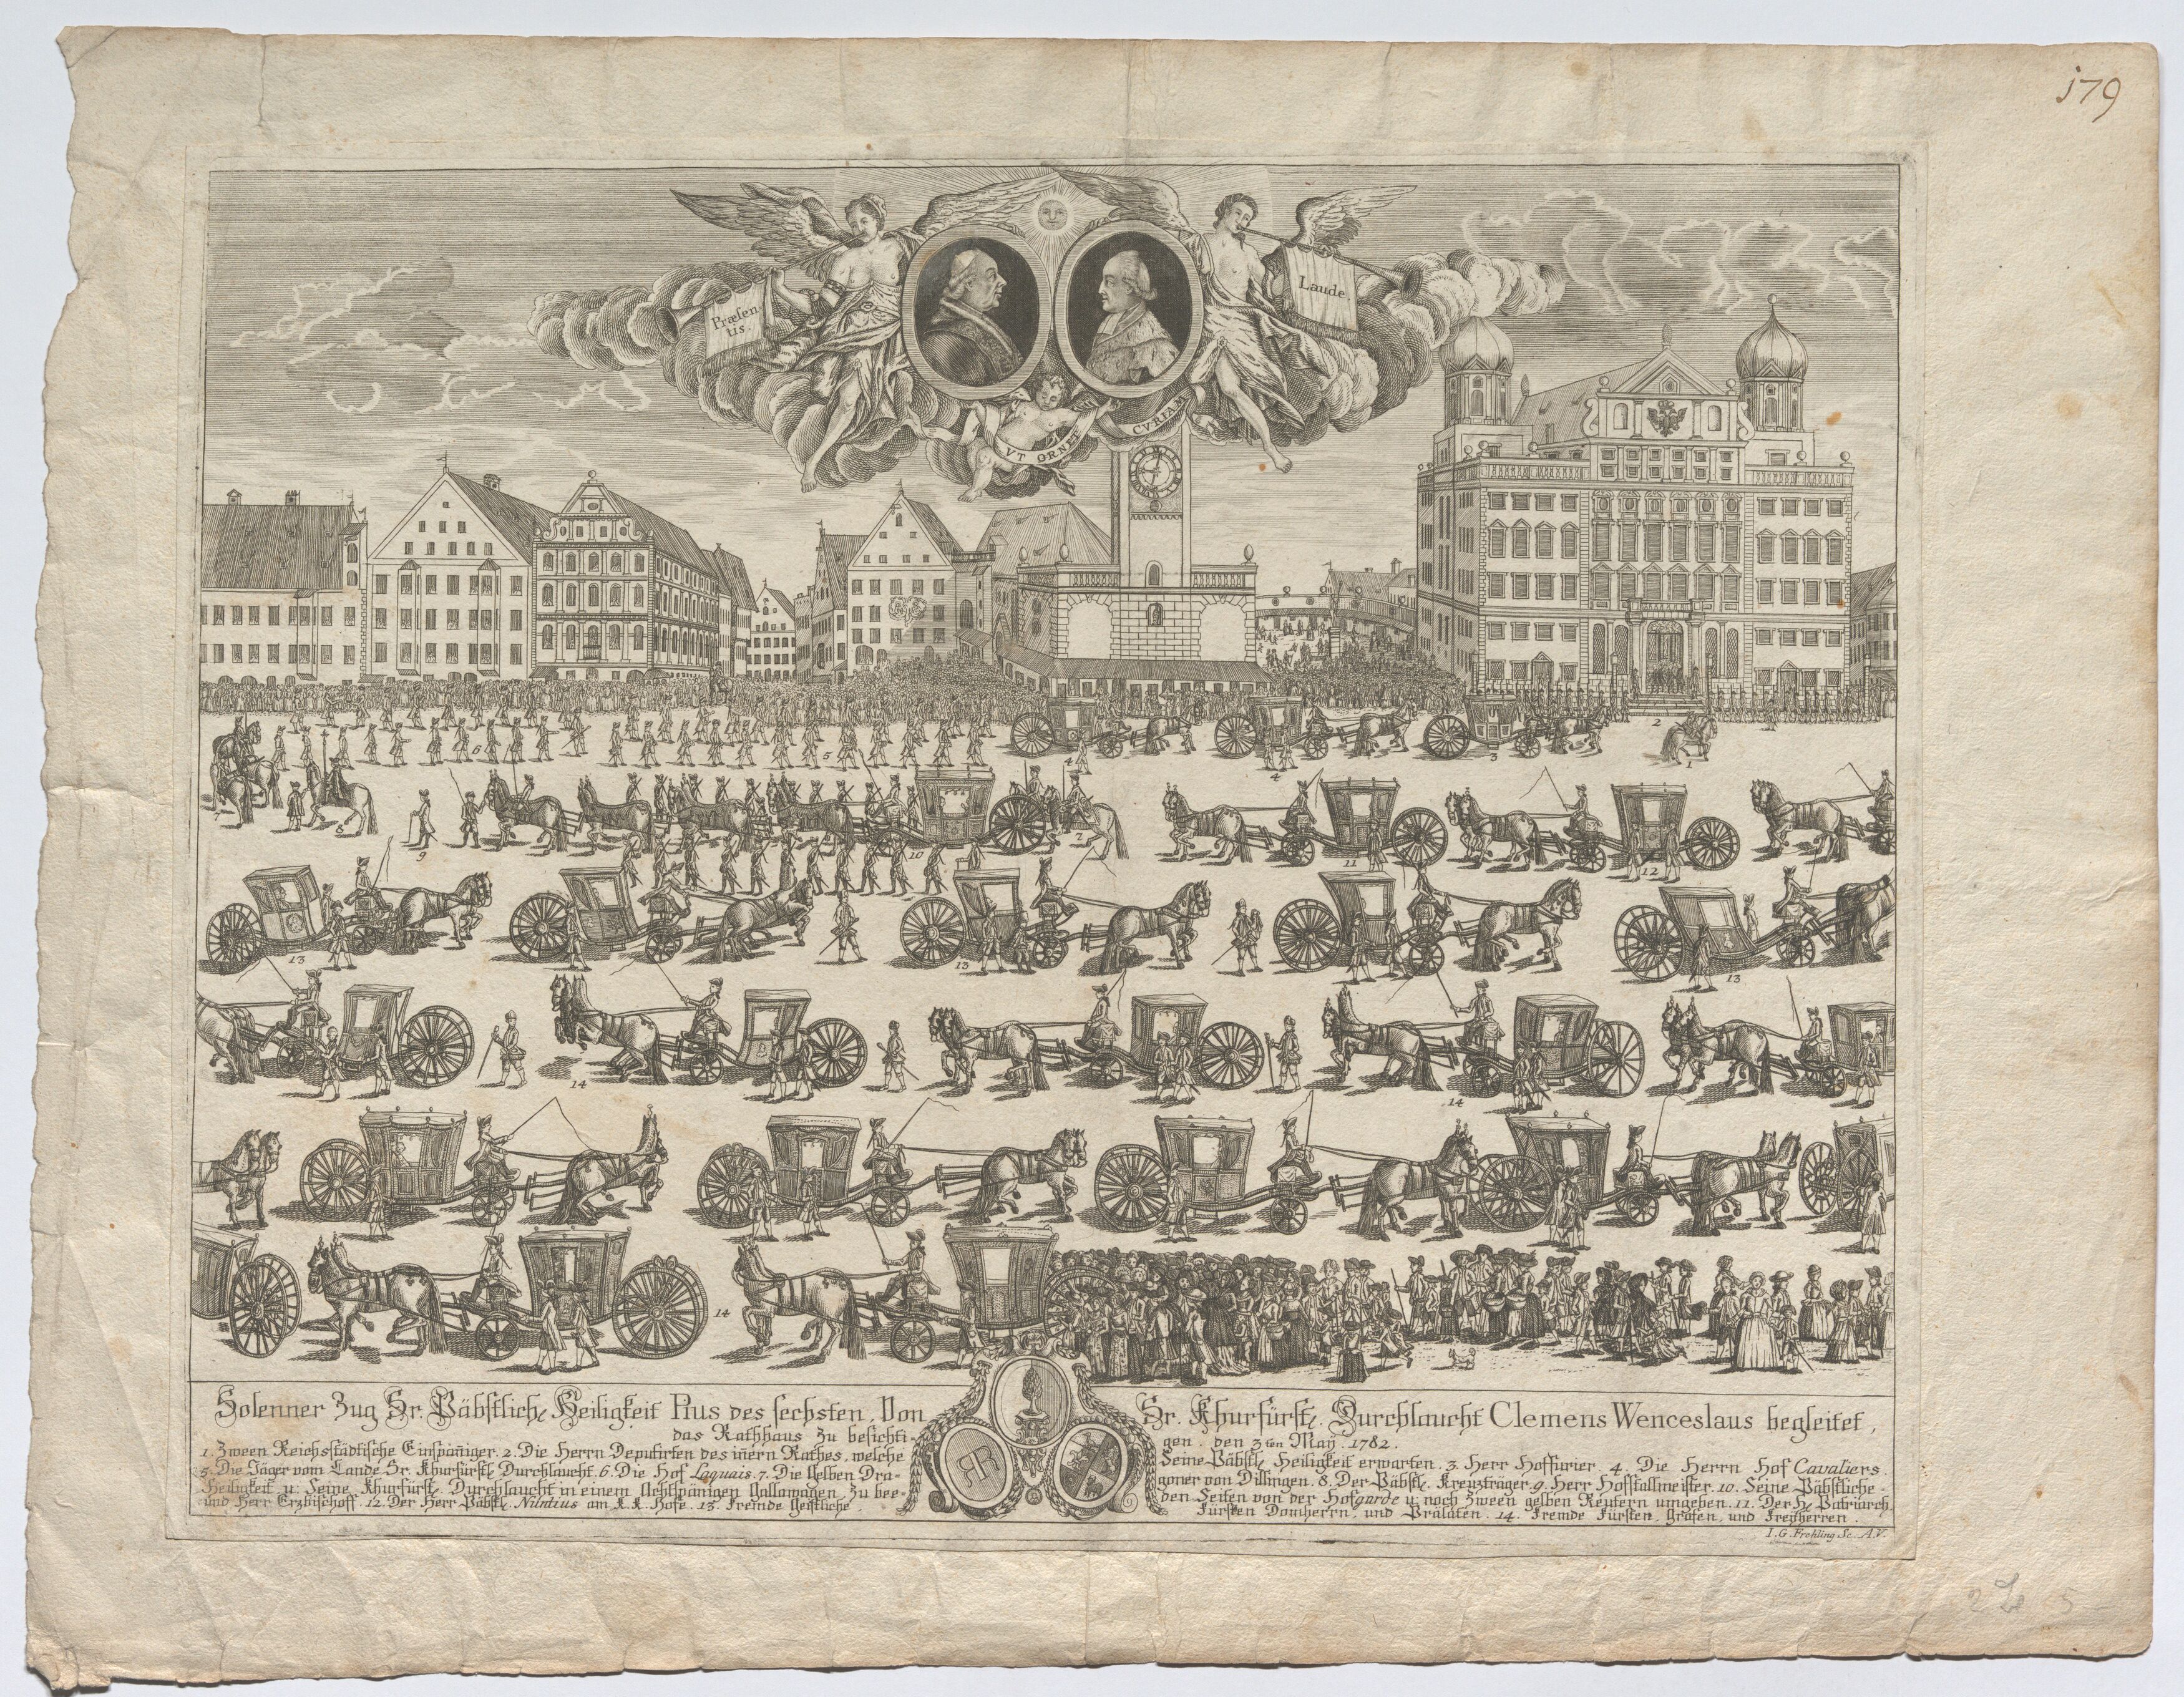 179
Præsen-
tis.
Laude.
VT ORNET CVRIAM
6
5
4
4
3
2
1
7
8
9
10
7
11
12
13
13
13
14
14
14
Solenner Zug Sr. Päbstlich. Heiligkeit Pius des sechsten, Von Sr. Khurfürstl. Durchlaucht Clemens Wenceslaus begleitet,
das Rathhaus zu besichti- gen. den 3ten May. 1782.
1. Zween Reichsstädtische Einspäniger. 2. Die Herrn Deputirten des iñern Rathes, welche Seine Päbstl. Heiligkeit erwarten. 3. Herr Hoffurier. 4. Die Herrn Hof Cavaliers.
5. Die Jäger vom Lande Sr. Khurfürstl. Durchlaucht. 6. Die Hof Laquais. 7. Die Gelben Dra- goner von Dillingen. 8. Der Päbstl. Kreuzträger. 9. Herr Hofstallmeister. 10. Seine Päbstliche
Heiligkeit u. Seine Khurfürstl. Durchlaucht in einem Achtspänigen Gallawagen, zu bee- den Seiten von der Hofgarde u. noch zween gelben Reutern umgeben. 11. Der H. Patriarch,
und Herr Erzbischoff. 12. Der Herr Päbstl. Nuntius am K. K. Hofe. 13. Fremde Geistliche Fürsten Domherrn, und Prälaten. 14. Fremde Fürsten, Grafen, und Freyherren.
I. G. Frohling Sc. A. V.